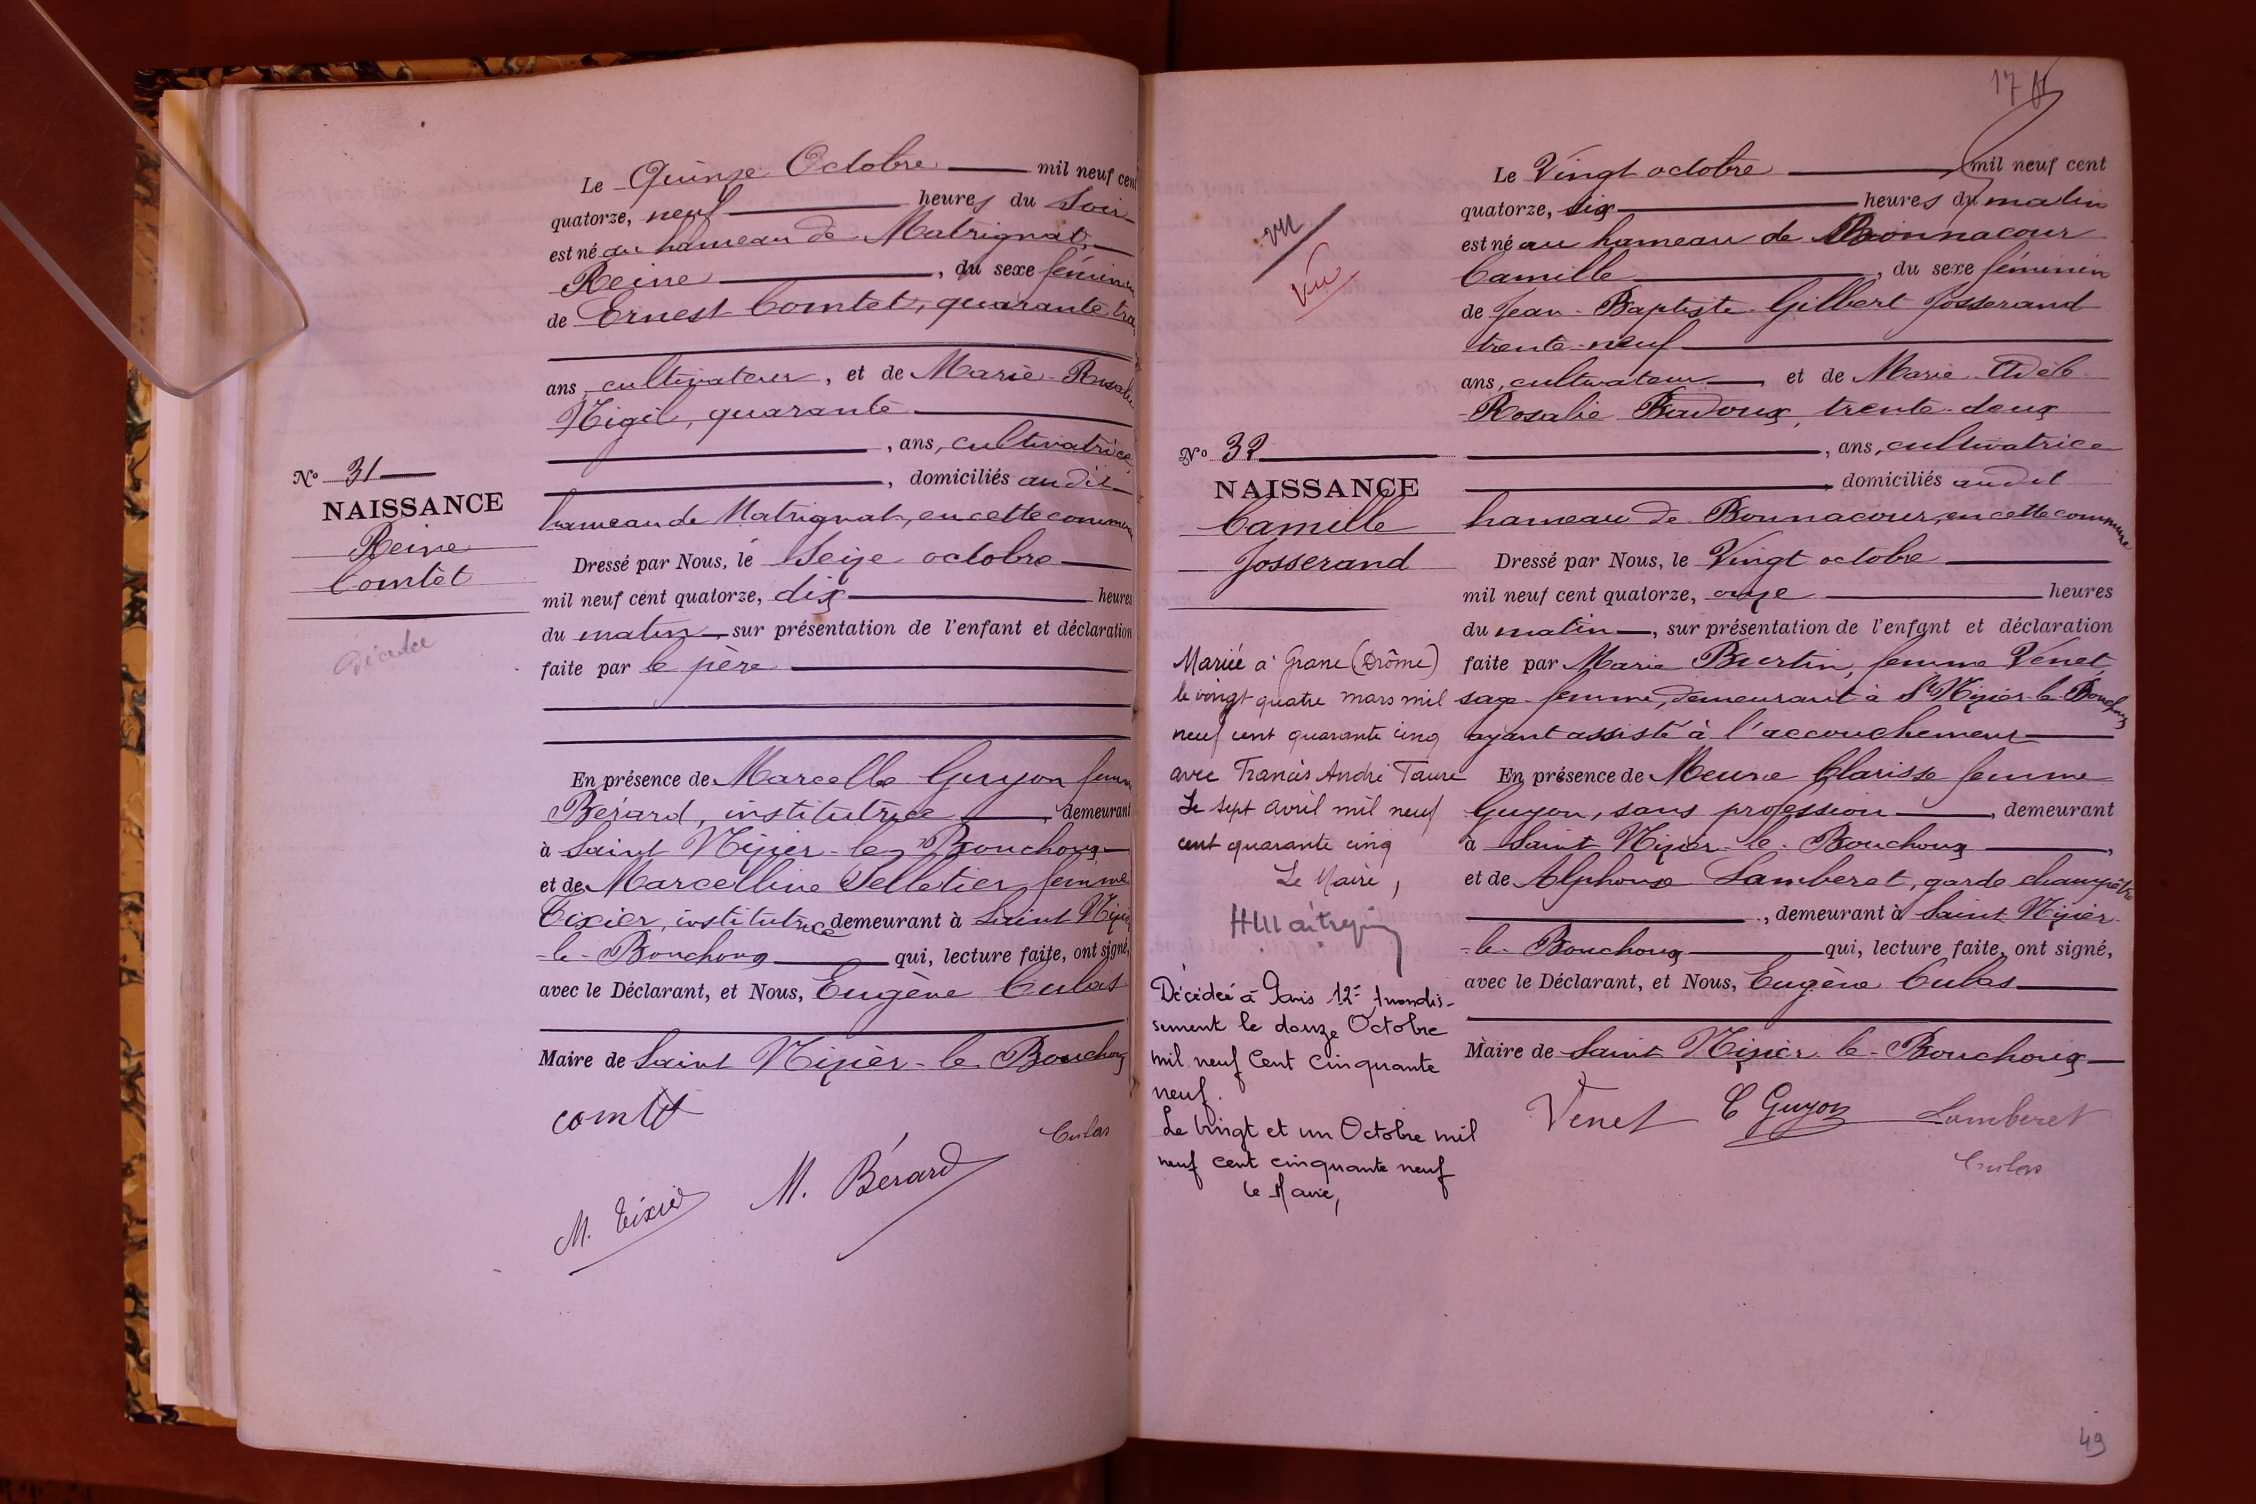 Le Quinze Octobre mil neuf cent
quatorze, neuf heures du Soir
est né au hameau de Matrignat,
Reine, du sexe féminin
de Ernest Comtet, quarante tro
ans, cultivateur, et de Marie-Rosalie
quarante
, ans, cultivatrice,
, domiciliés audit
hameau de Matrignat, en cette commune
N° 31
NAISSANCE
Reine
Comtet
Décédée
Dressé par Nous, le Seize octobre
mil neuf cent quatorze, dix heures
du matin, sur présentation de l'enfant et déclaration
faite par le père
En présence de Marcelle Guyon femme
Bérard, institutrice, demeurant
à Saint Nizier-le-Bouchoux
et de Marcelline Pelletier, femme
Tixier, institutrice demeurant à Saint Nizier
-le-Bouchoux qui, lecture faite, ont signé,
avec le Déclarant, et Nous, Eugène Culas
Maire de Saint Nizier-le-Bouchoux
Comtet
Culas
M. Tixier
M. Bérard
17
Le Vingt octobre, mil neuf cent
quatorze, six heures du matin
est né au hameau de Bonnacour
Camille, du sexe féminin
de Jean-Baptiste-Gilbert Josserand
trente-neuf
ans, cultivateur, et de Marie Adèle
Rosalie Badoux, trente-deux
, ans, cultivatrice
domiciliés audit
hameau de Bonnacour, en cette commune
vu
vu
N° 32
NAISSANCE
Camille
Josserand
Mariée à Grane (Drôme)
le vingt quatre mars mil
neuf cent quarante cinq
avec Francis André Faure
Le sept avril mil neuf
cent quarante cinq
Le Maire,
Décédée à Paris 12e Arrondis-
sement le douze Octobre
mil neuf Cent Cinquante
neuf.
Le Vingt et un Octobre mil
neuf cent cinquante neuf
le Maire,
Dressé par Nous, le Vingt octobre
mil neuf cent quatorze, onze heures
du matin, sur présentation de l'enfant et déclaration
faite par Marie Burtin, femme Venet,
sage-femme, demeurant à St Nizier-le-Bouchoux
ayant assisté à l'accouchement
En présence de Meune Clarisse femme
Guyon, sans profession, demeurant
à Saint Nizier-le-Bouchoux,
et de Alphonse Lamberet, garde champêtre
, demeurant à Saint Nizier-
-le-Bouchoux qui, lecture faite, ont signé,
avec le Déclarant, et Nous, Eugène Culas
Maire de Saint Nizier le-Bouchoux
Venet C Guyon Lamberet
Culas
49